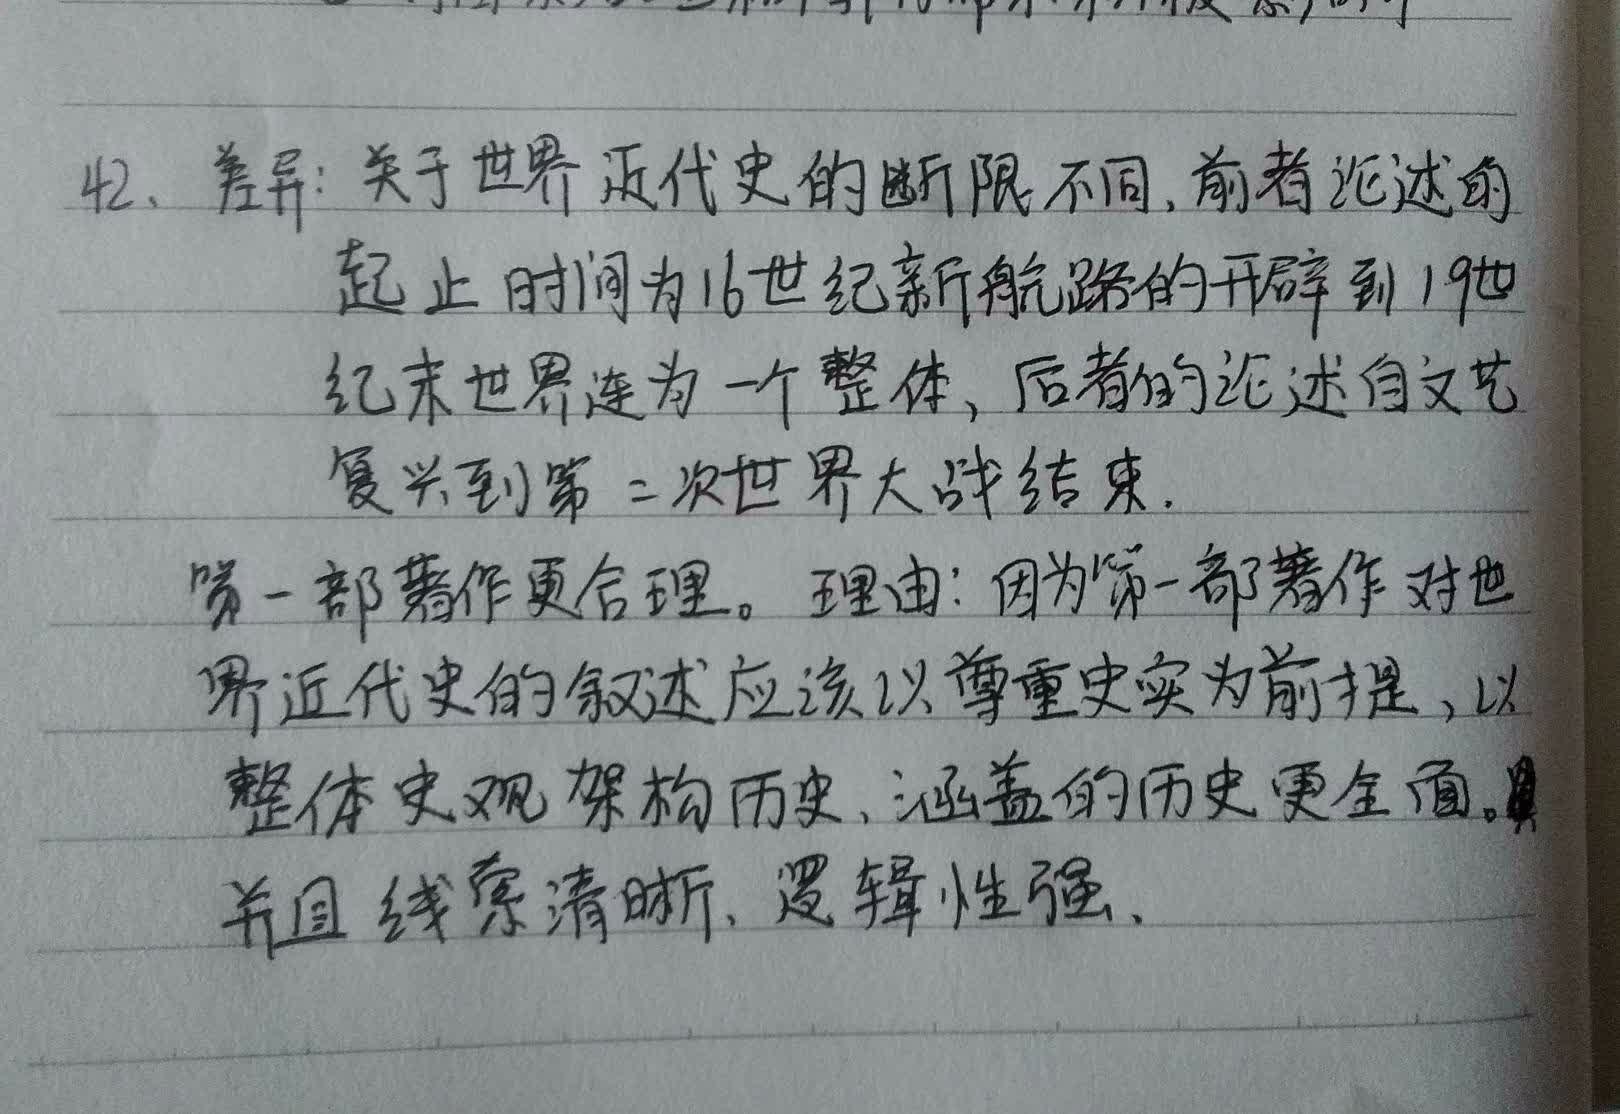 42、差异：关于世界近代史的断限不同，前者论述的
起止时间为16世纪新航路的开辟到19世
纪末世界连为一个整体，后者的论述自文艺
复兴到第二次世界大战结束.
第一部著作更合理。理由：因为第一部著作对世
界近代史的叙述应该以尊重史实为前提，以
整体史观架构历史、涵盖的历史更全面。
并且线索清晰、逻辑性强、